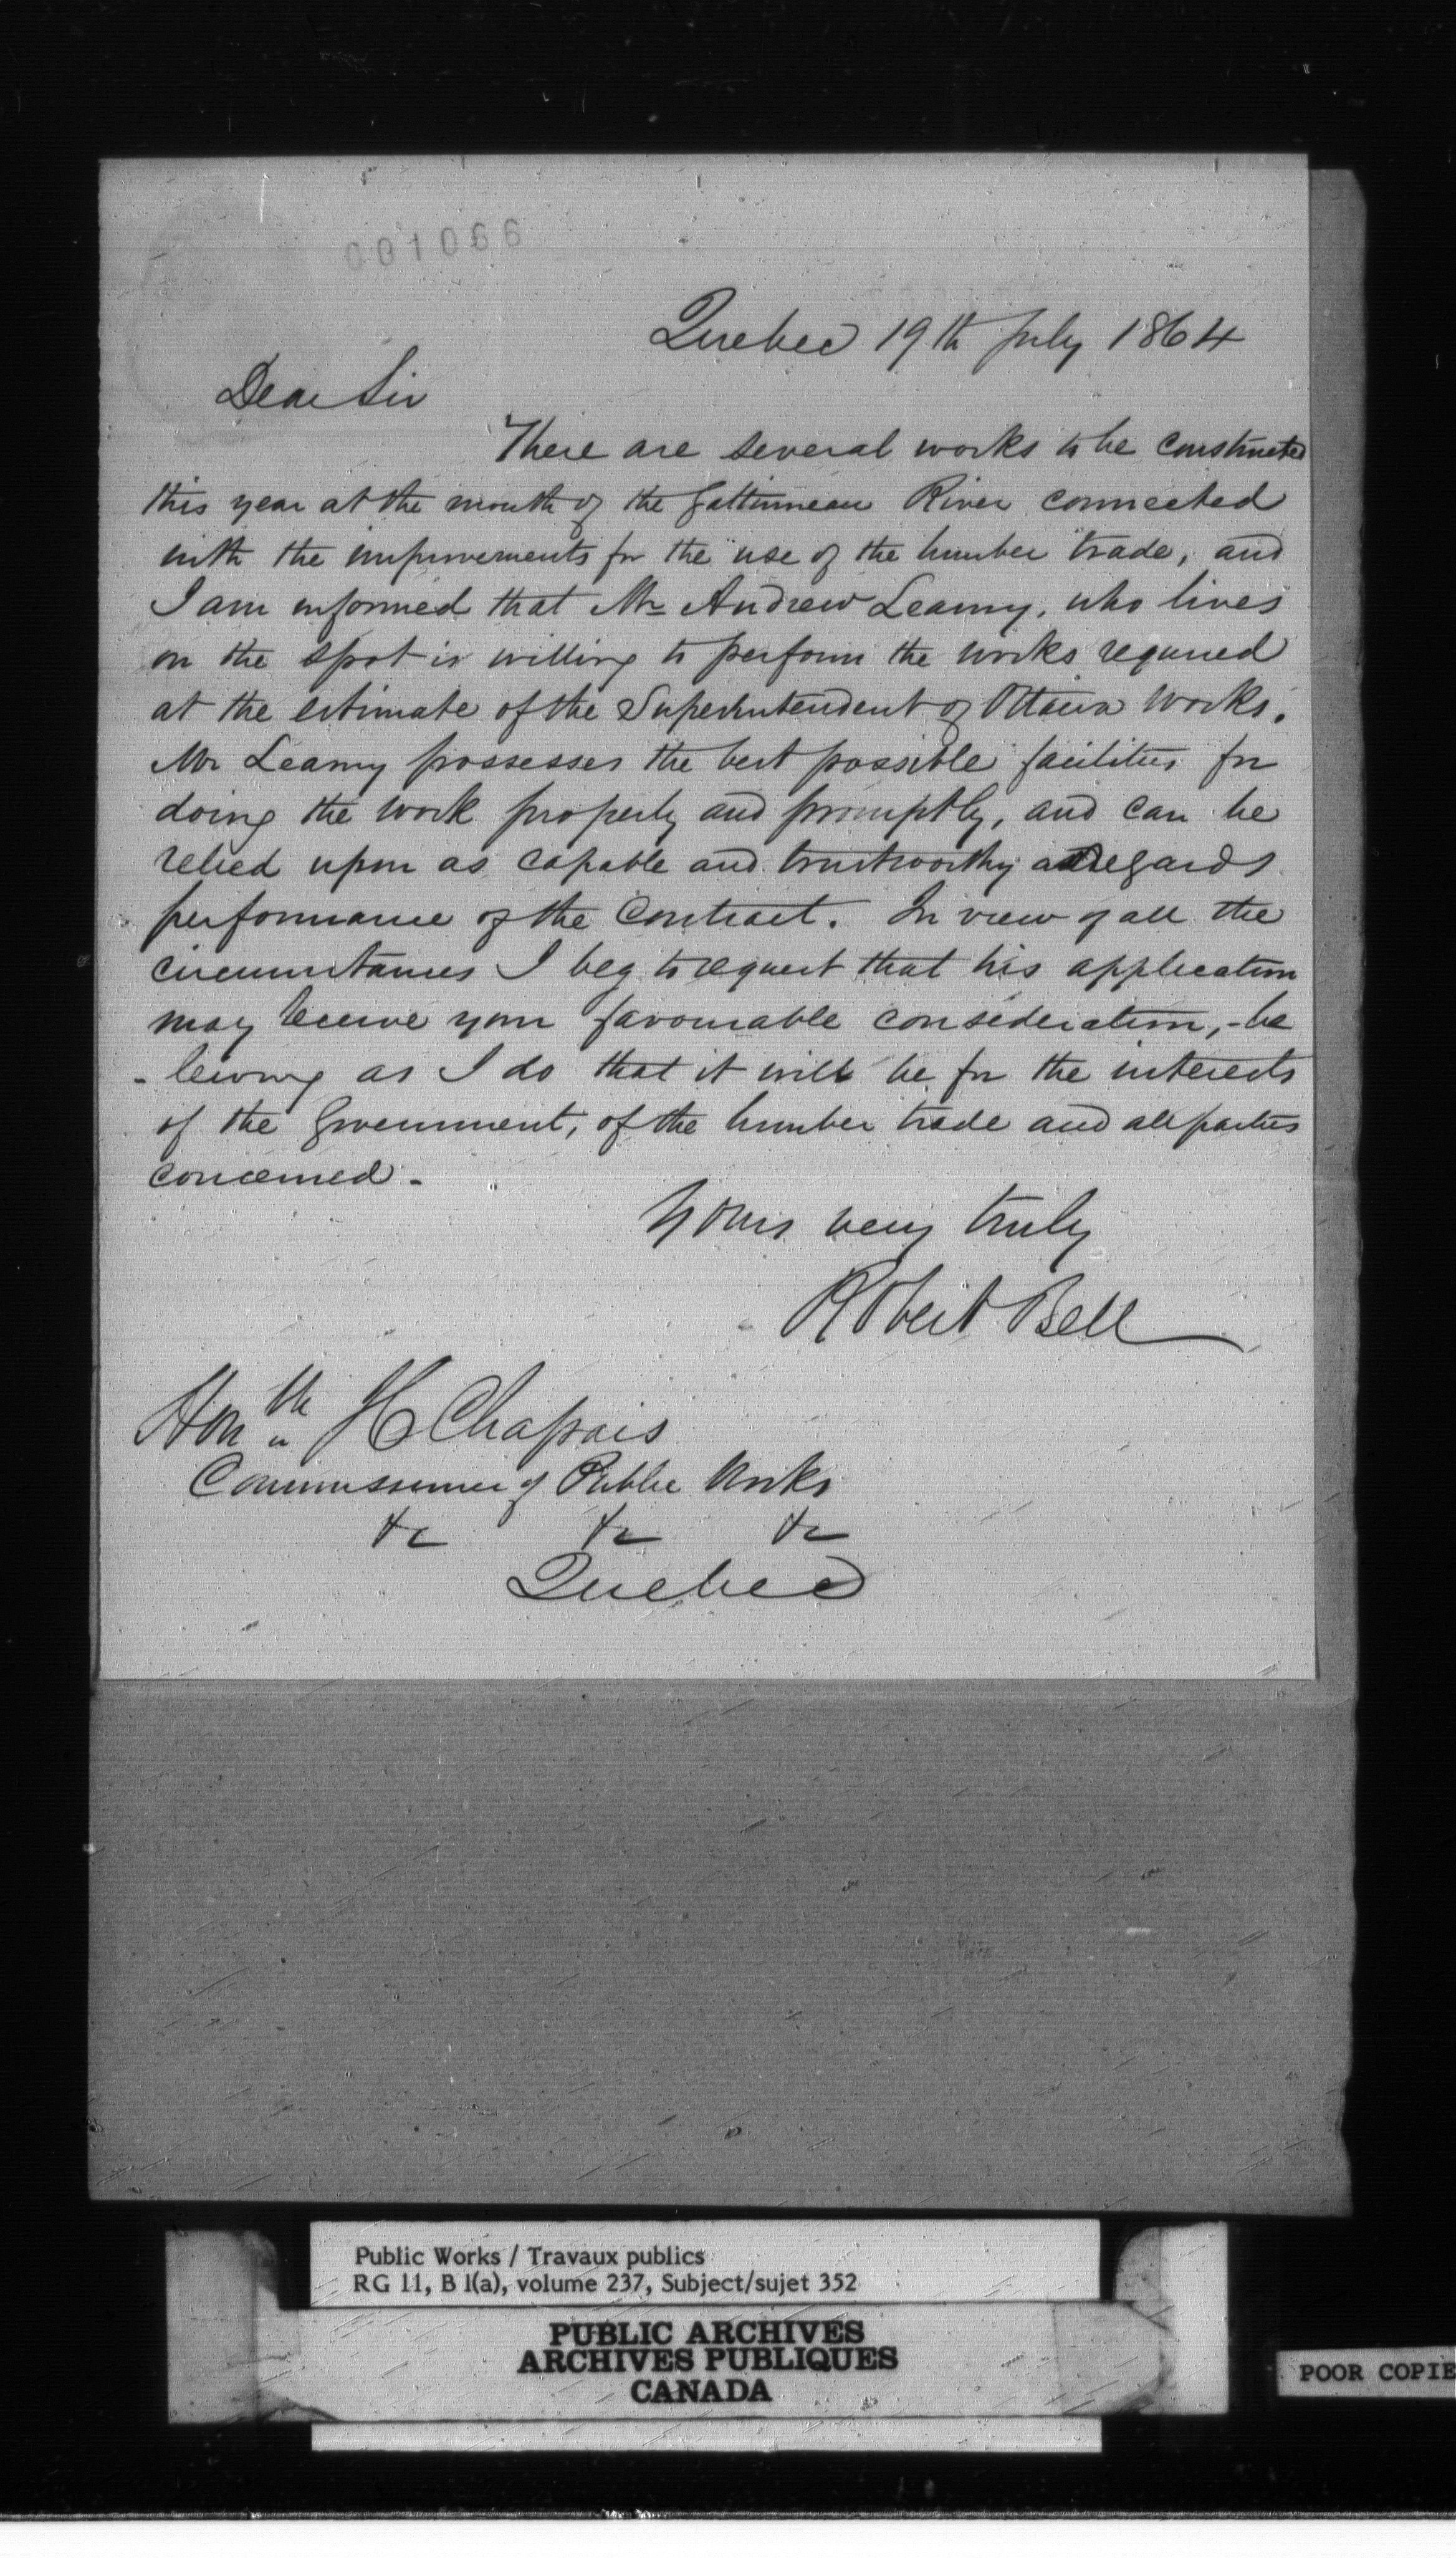 001066
Quebec 19th July 1864
Dear Sir
There are several works to be constructed
this year at the mouth of the Gattineau River connected
with the improvements for the use of the lumber trade, and
I am informed that Mr Andrew Leamy, who lives
on the spot is willing to perform the works required
at the estimate of the Superintendent of Ottawa Works.
Mr Leamy possesses the best possible facilities for
doing the work properly and promptly, and can be
relied upon as capable and trustworthy as regards
performance of the Contract. In view of all the
circumstances I beg to request that his application
may receive your favourable consideration, - be
- leiving as I do that it will be for the interests
of the Government, of the lumber trade and all parties
concerned -
Yours very truly
Robert Bell
Honble H Chapais
Commissioner of Public Works
&c &c &c
Quebec
Public Works / Travaux publics
RG 11, B 1(a), volume 237, Subject/sujet 352
PUBLIC ARCHIVES
ARCHIVES PUBLIQUES
CANADA
POOR COPIE